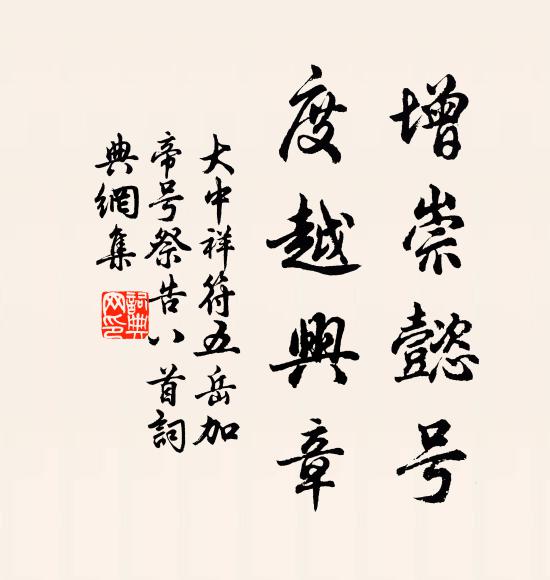 增崇懿号
度越興章
大中祥符五岳加
帝号祭告八首詞
典網集
詞典
网印